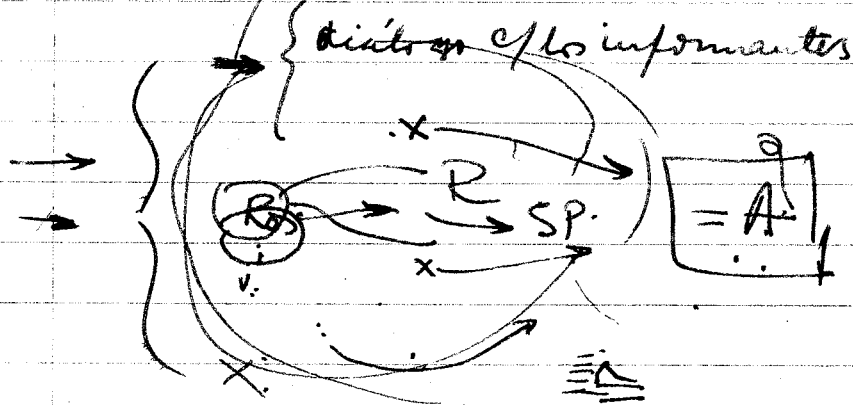 { diálogo c/ los informantes
x
R
R → SP.
= A
x
v.
X